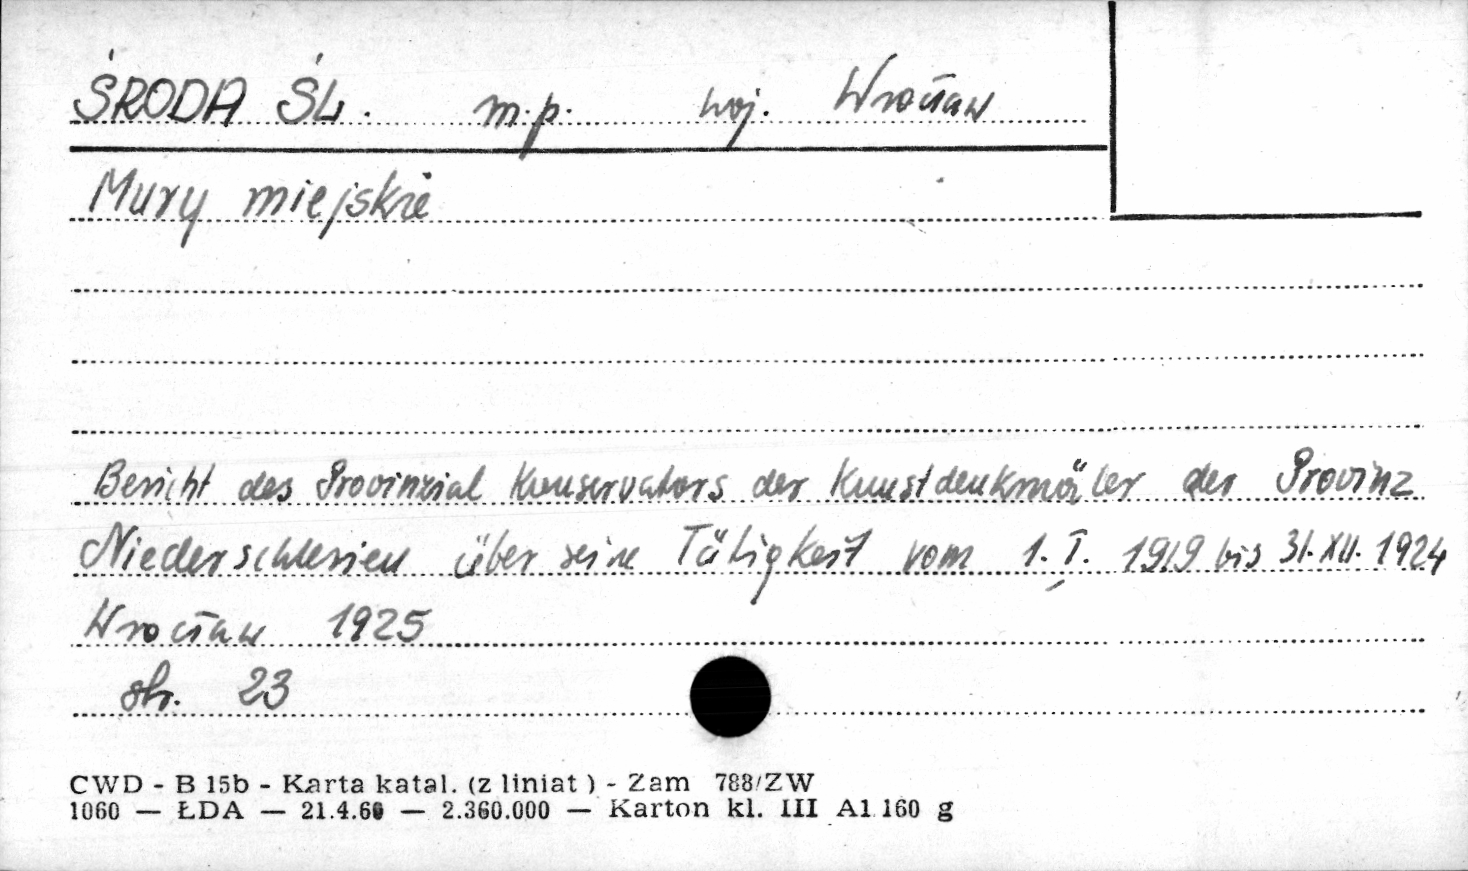 ŚRODA ŚL. m.p. woj. Wrocław
Mury miejskie
Bericht des Provinzial Konservators der Kunstdenkmäler der Provinz
Niederschlesien über seine Tätigkeit vom 1. I. 1919 bis 31. XII. 1924
Wrocław 1925
str. 23
CWD - B 15b - Karta katal. (z liniat ) - Zam 788/ZW
1060 — ŁDA — 21.4.60 — 2.360.000 — Karton kl. III A1 160 g